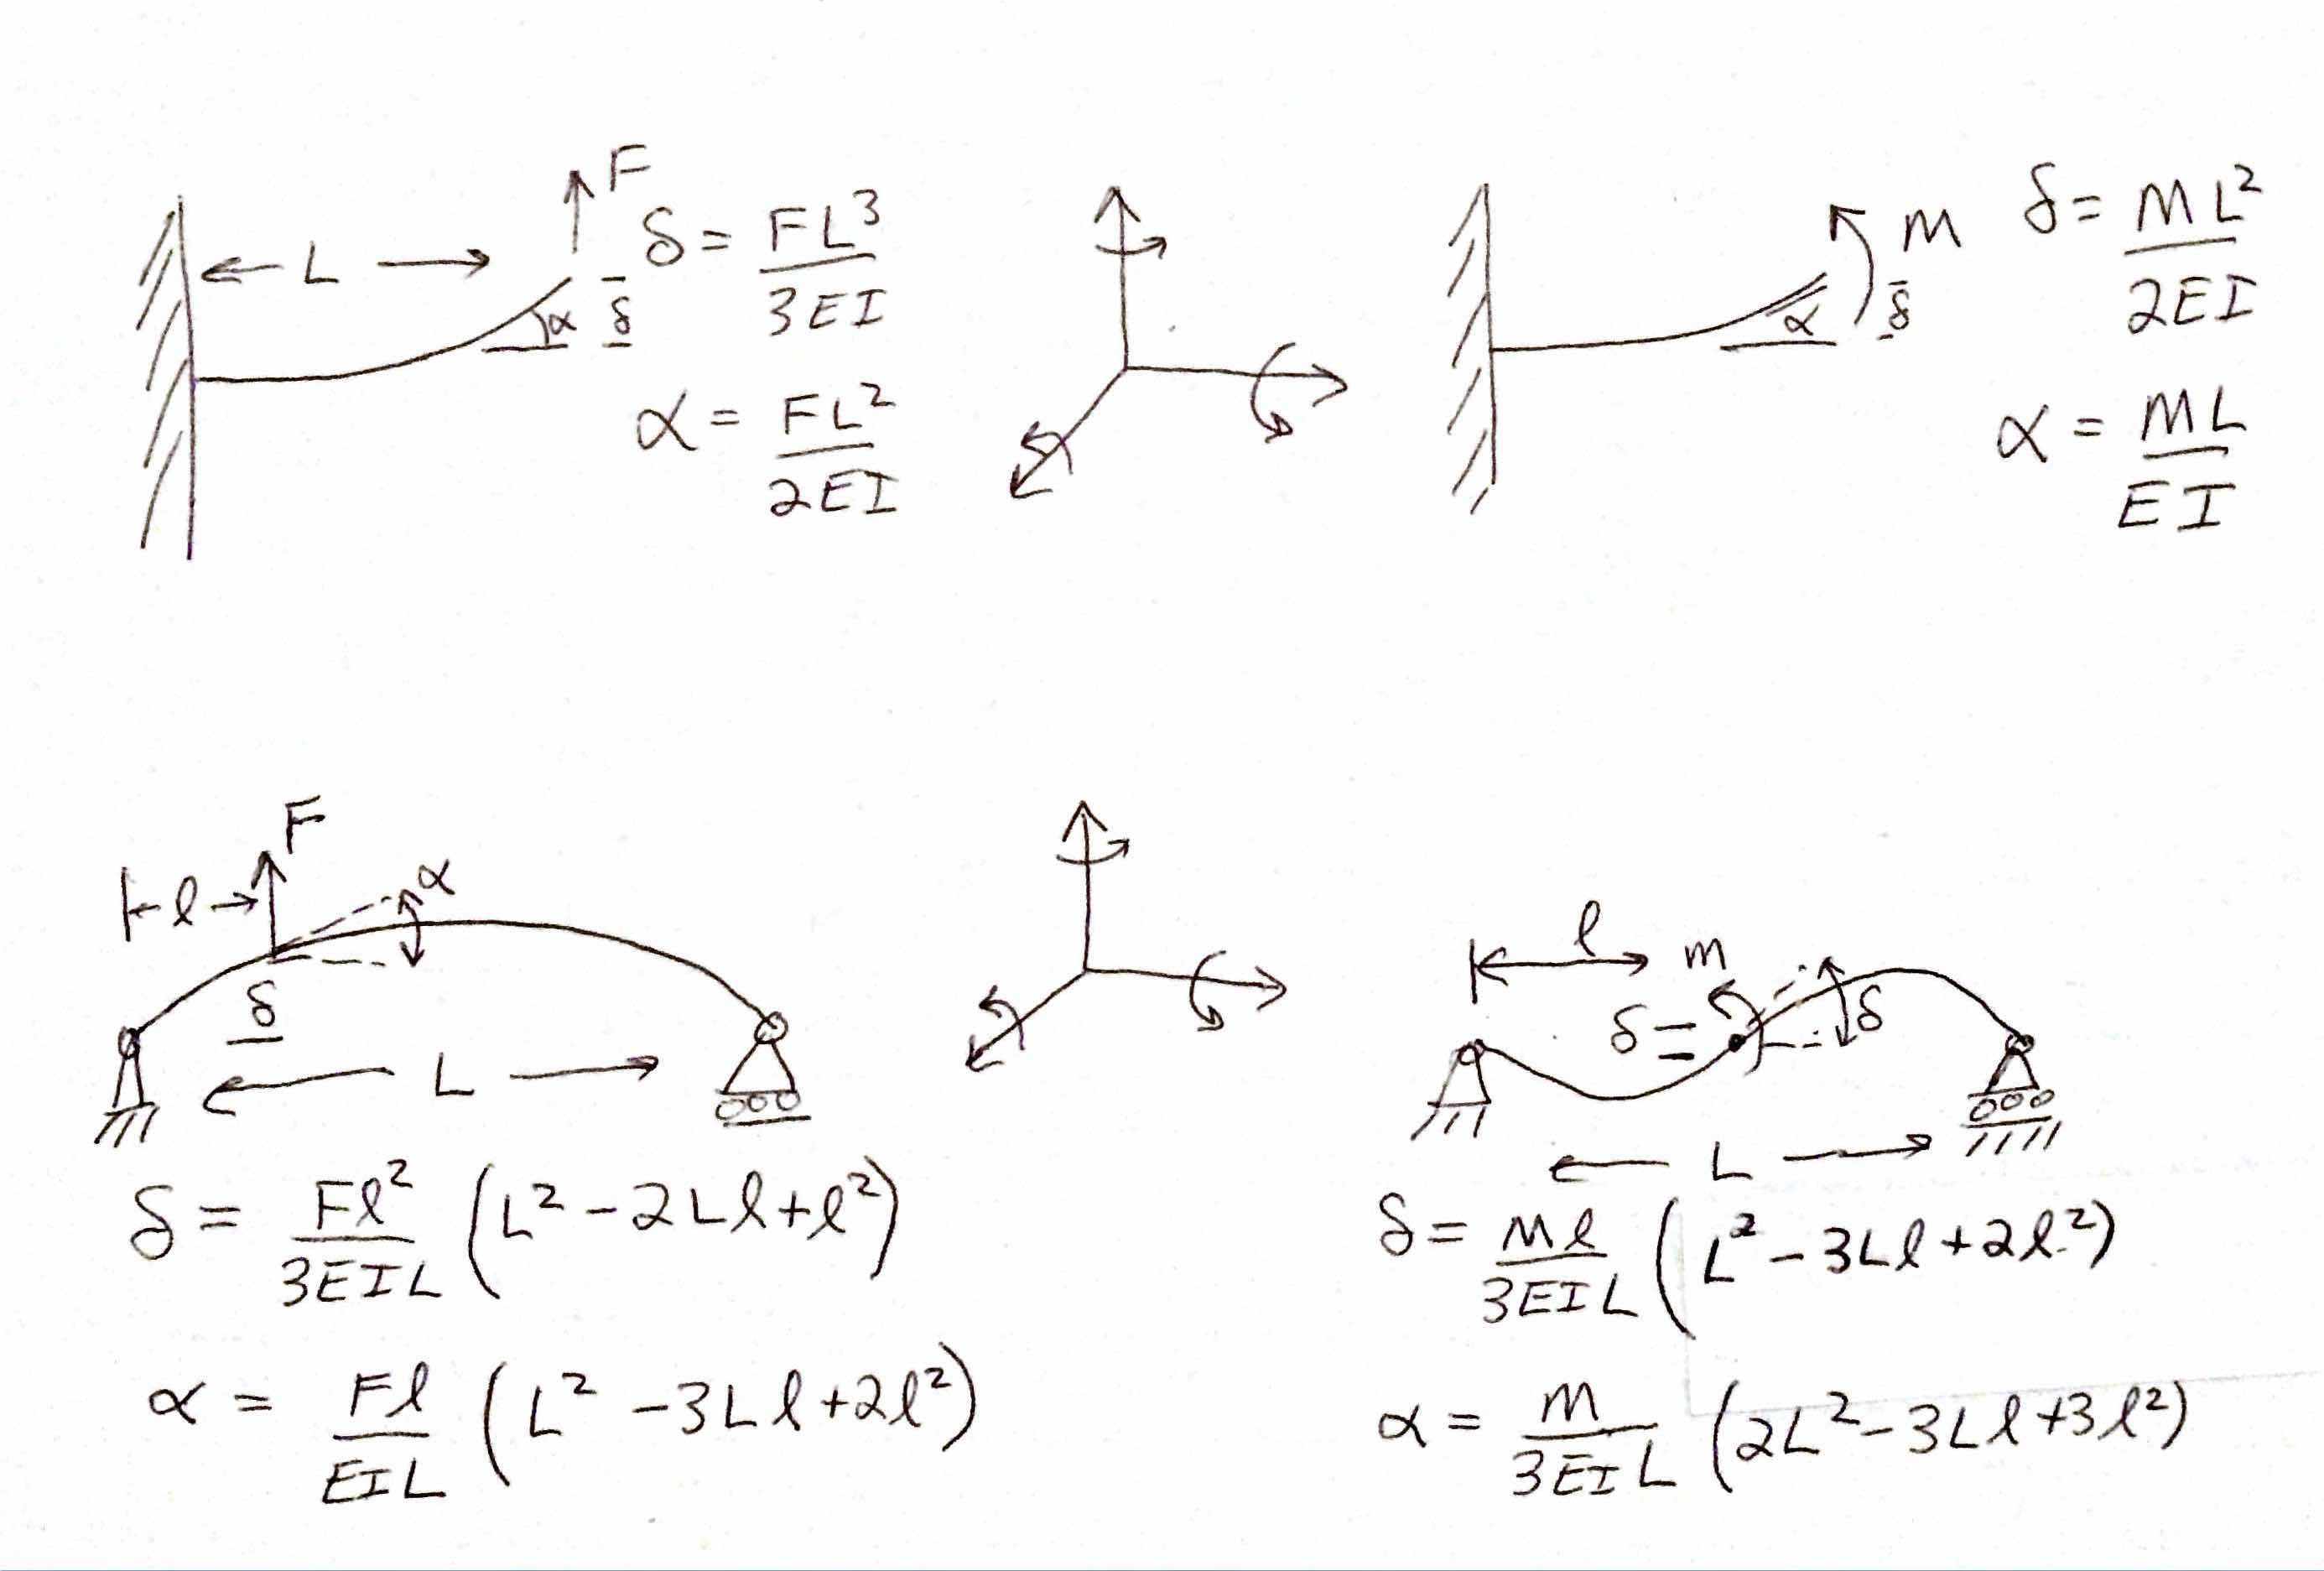 F
L
α δ
δ = FL³/3EI
α = FL²/2EI
M
α δ
δ = ML²/2EI
α = ML/EI
F
l
α
δ
L
δ = Fl²/3EIL (L² - 2Ll + l²)
α = Fl/EIL (L² - 3Ll + 2l²)
l
m
δ δ
L
δ = Ml/3EIL (L² - 3Ll + 2l²)
α = m/3EIL (2L² - 3Ll + 3l²)